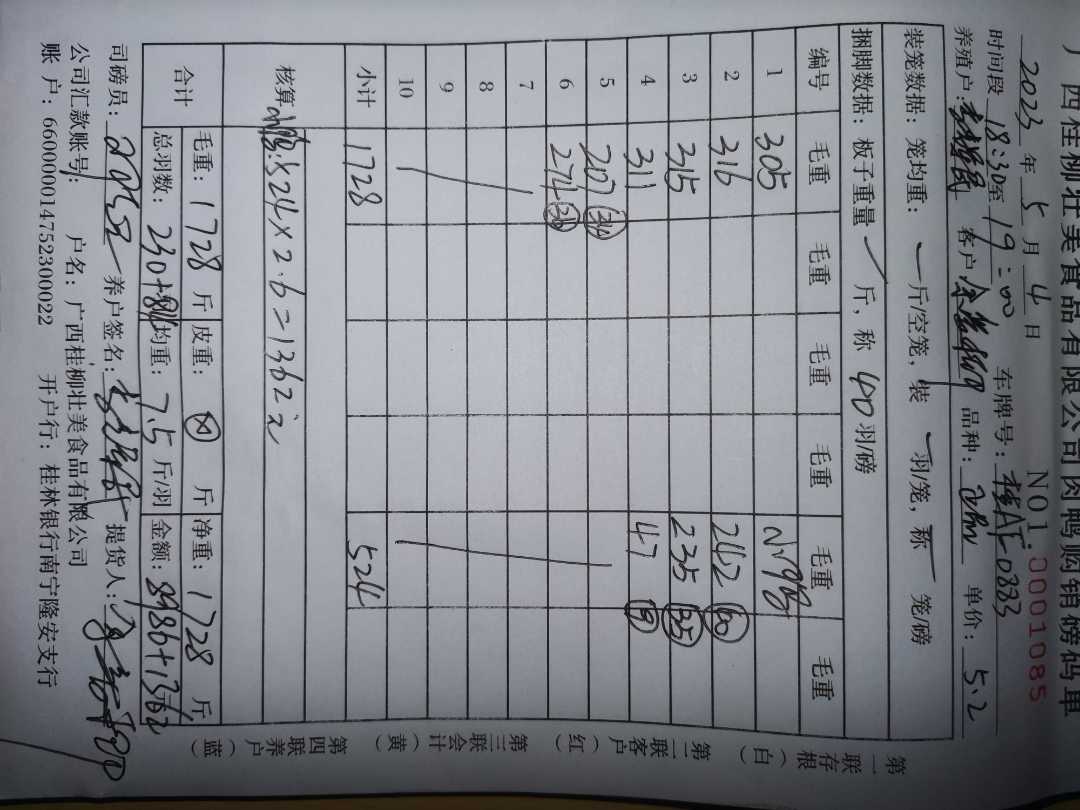 广西桂柳壮美食品有限公司肉鸭购销磅码单
NO1.0001085
2023年5月4日 车牌号:桂AF0883
时间段18:30至19:00
养殖户: 客户: 品种: 单价:5.2
装笼数据:笼均重: 一 斤/空笼,装 一 羽/笼,称 一 笼/磅
捆脚数据:板子重量 斤,称 40 羽/磅
编号 毛重 毛重 毛重 毛重 毛重 毛重
1 305 小鸭
2 316 242 60
3 315 235 55
4 311 47
5 207
6 274
7
8
9
10
小计 1728 524
核算 小鸭:524×2.6=1362元
合计 毛重:1728斤 皮重: 斤 净重:1728斤
总羽数:230 均重:7.5斤/羽 金额:8986+1362
司磅员: 养户签名: 提货人:
公司汇款账号: 户名:广西桂柳壮美食品有限公司
账户:660000014752300022 开户行:桂林银行南宁隆安支行
第一联存根(白)
第二联客户(红)
第三联会计(黄)
第四联养户(蓝)